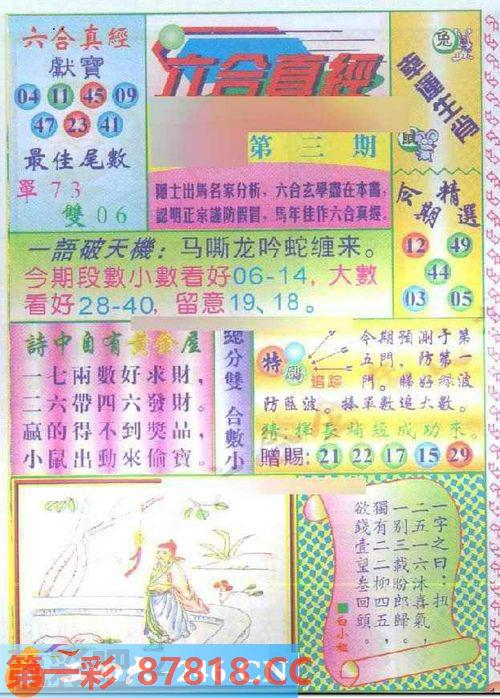 六合真經
獻寶
04 11 45 09
47 23 41
最佳尾數
單 7 3
雙 0 6
六合真經
第三期
隱士出馬名家分析、六合玄學盡在本書,
認明正宗謹防假冒、馬年佳作六合真經。
兔
鼠
幸運生肖
今期精選
12 49
44
03 05
一語破天機：马嘶龙吟蛇缠来。
今期段數小數看好06-14, 大數
看好28-40, 留意19、18。
詩中自有黄金屋
一七兩數好求財，
二六帶四六發財。
贏的得不到獎品，
小鼠出動來偷寶。
總分雙 合數小
特碼
追踪
今期預測于第
五門，防第一
門。睇好绿波
防藍波。捧單數追大數。
贈賜: 21 22 17 15 29
一字之曰：扭
二五一六沐喜氣，
一别三載盼郎歸，
獨有二二柳四五，
欲錢壹望叁回頭。
白小姐
246.CN
第一彩 87818.CC